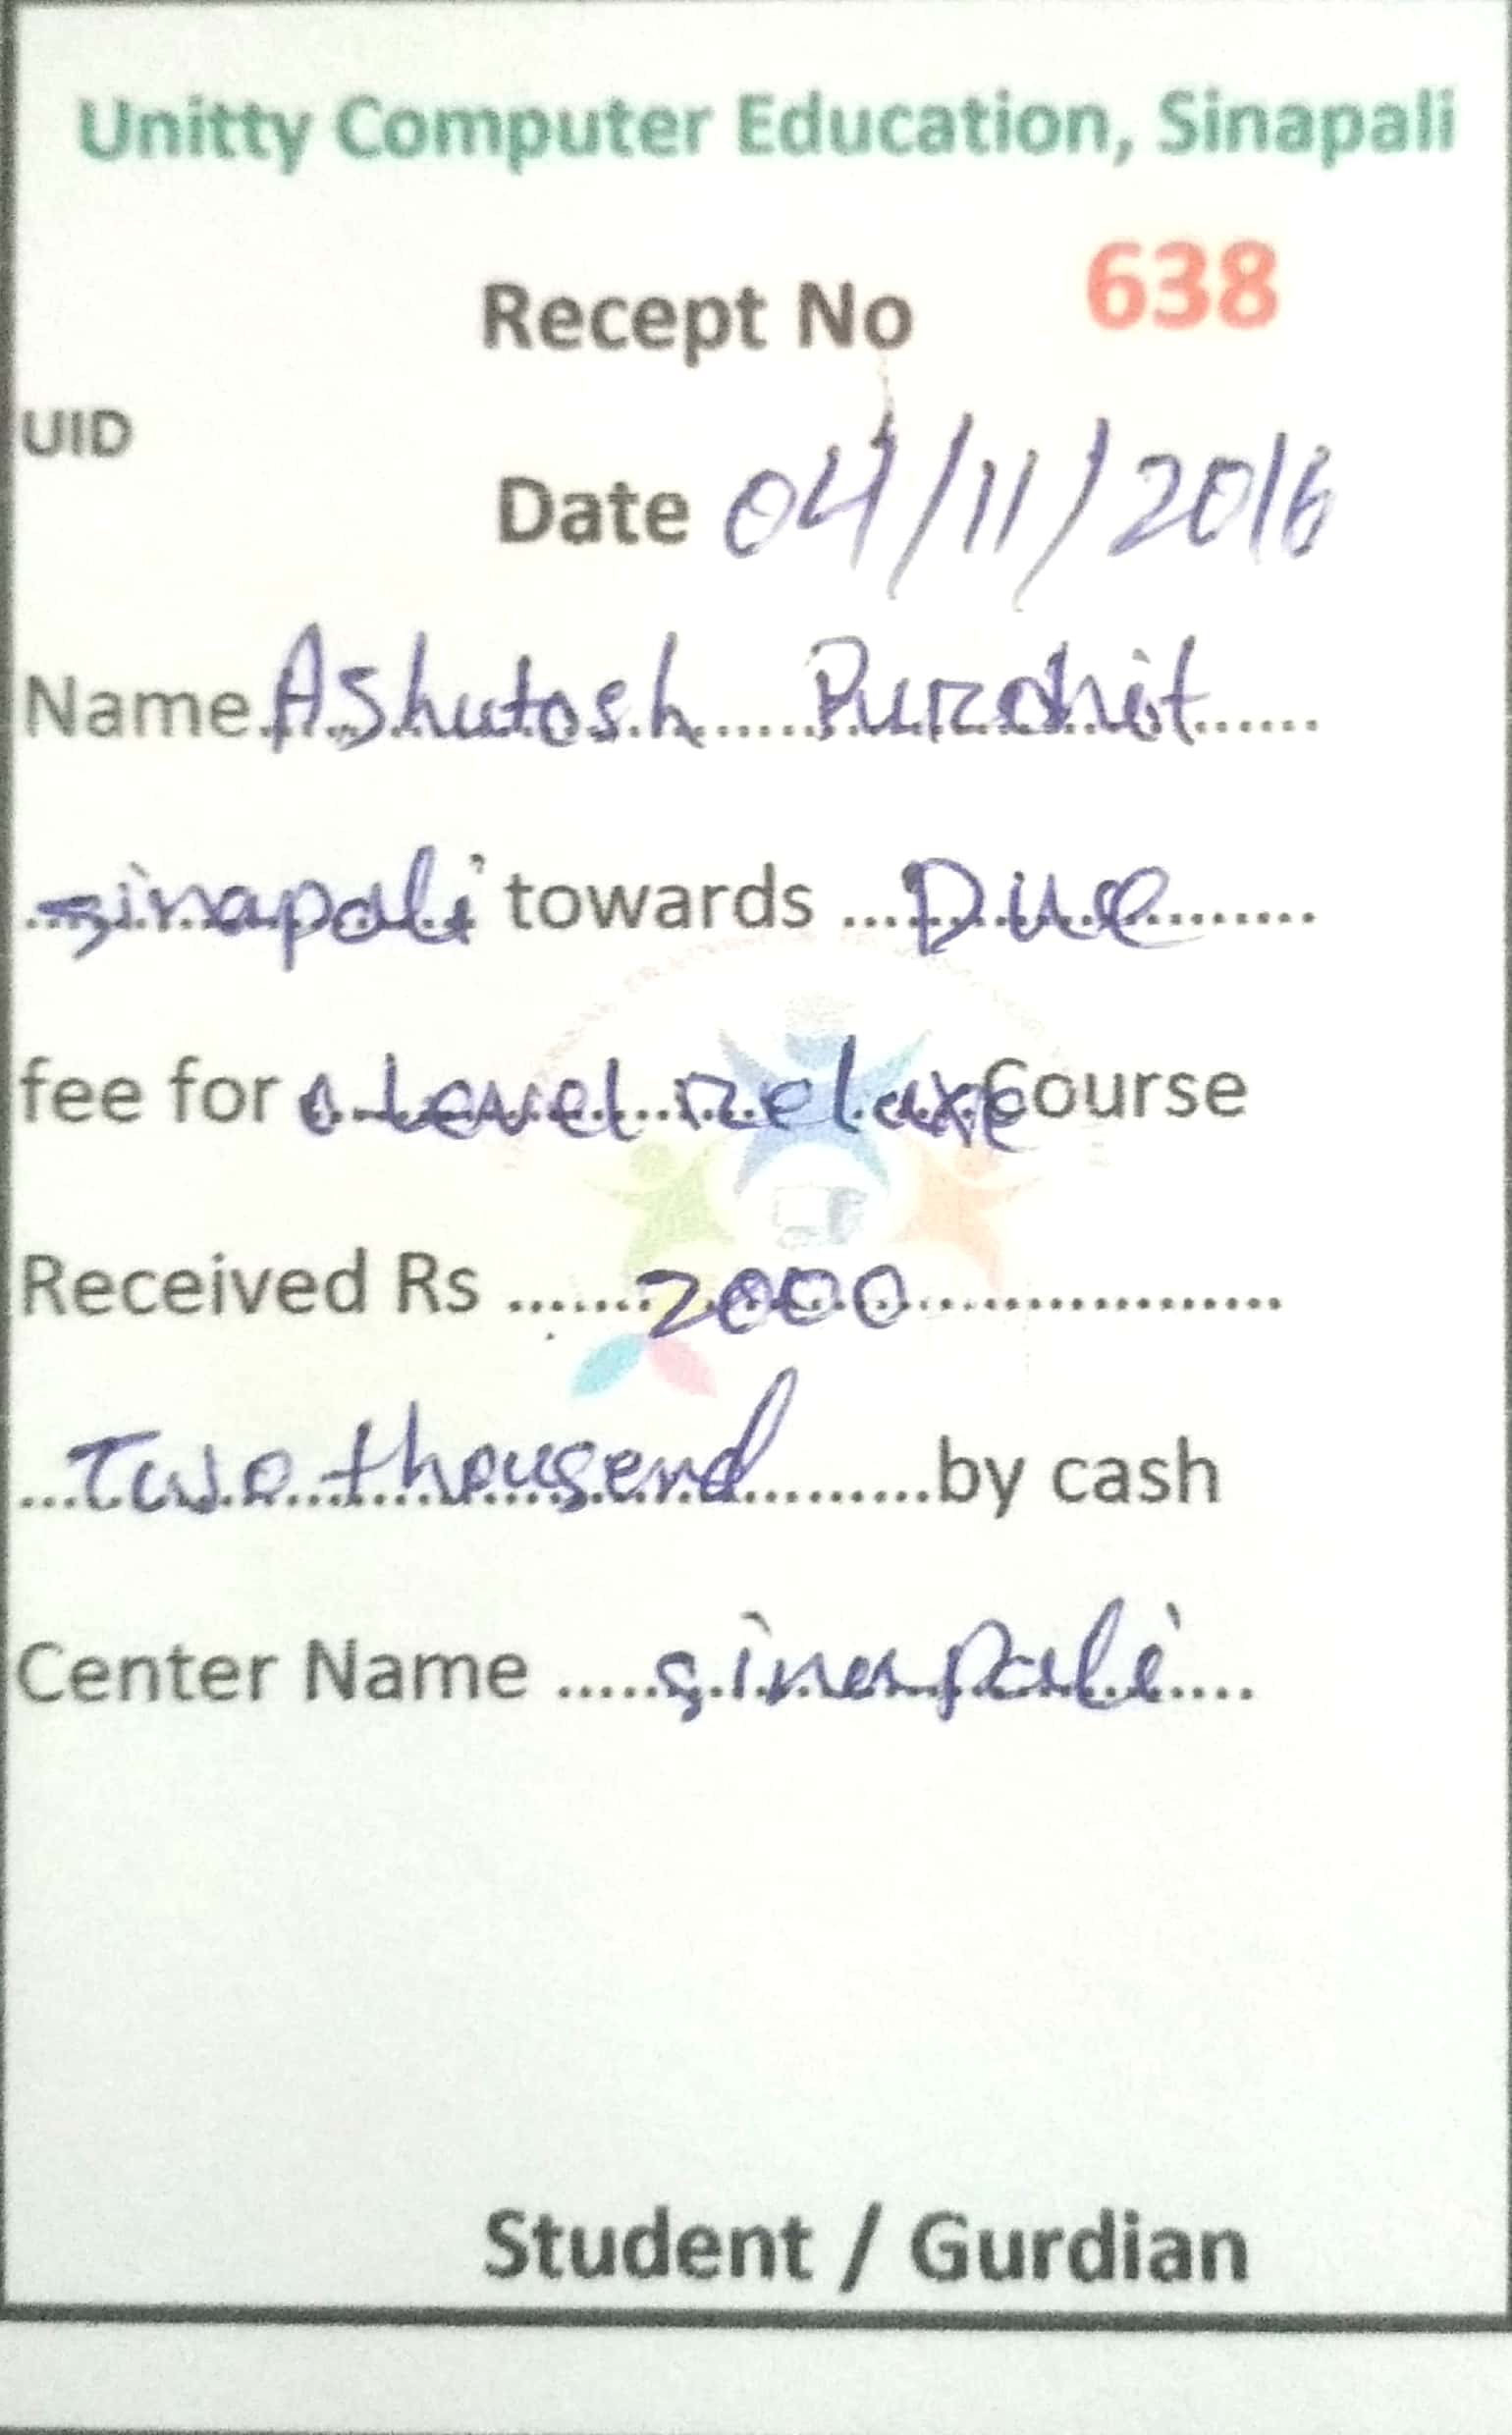 Unitty Computer Education, Sinapali
Recept No 638
UID
Date 04/11/2016
Name Ashutosh Purohit
sinapali towards Due
fee for o Level relaxe Course
Received Rs 2000
Two thousend by cash
Center Name sinapali
Student / Gurdian